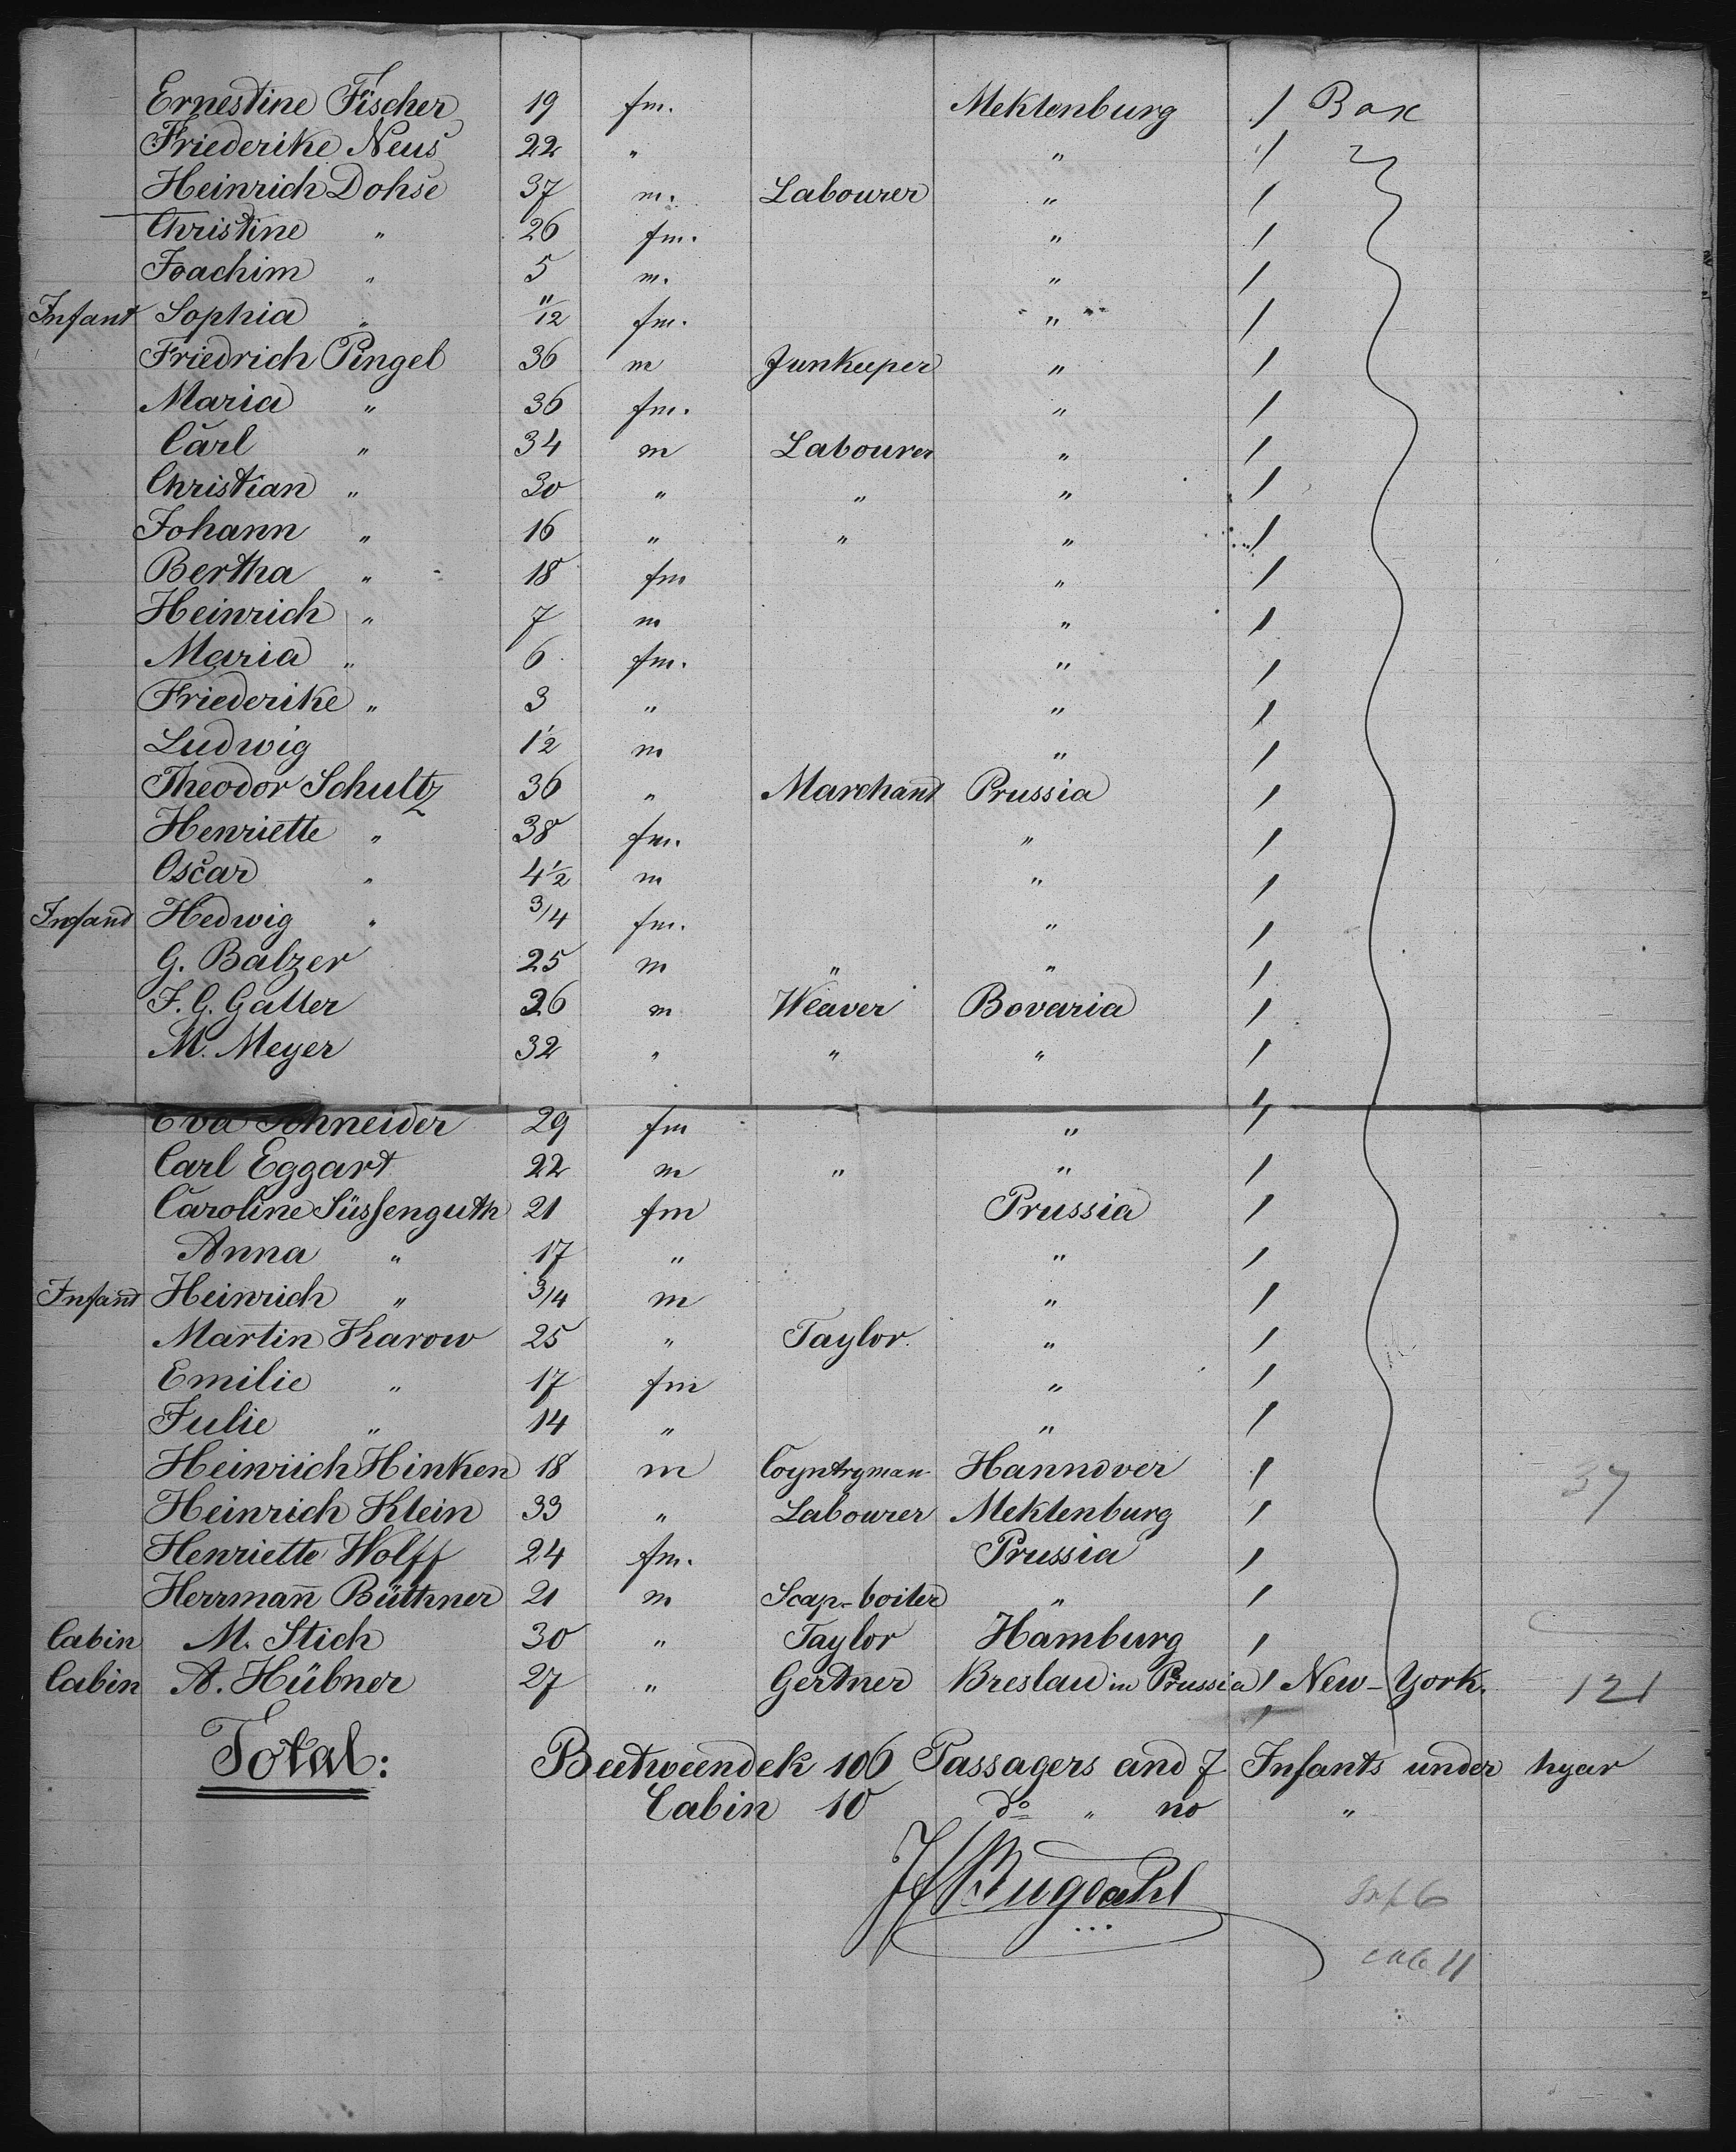 Ernestine Fischer 19 fm. Meklenburg 1 Box
Friederike Neus 22 " " 1
Heinrich Dohse 37 m. Labourer " 1
Christine " 26 fm. " 1
Joachim " 5 m. " 1
Infant Sophia " 11/12 fm. " 1
Friedrich Pingel 36 m Junkeeper " 1
Maria " 36 fm. " 1
Carl " 34 m Labourer " 1
Christian " 30 " " " 1
Johann " 16 " " " 1
Bertha " 18 fm " 1
Heinrich " 7 m " 1
Maria " 6 fm. " 1
Friederike " 3 " " 1
Ludwig 1½ m " 1
Theodor Schultz 36 " Marchant Prussia 1
Henriette " 38 fm. " 1
Oscar " 4½ m " 1
Infand Hedwig " 3/4 fm. " 1
G. Balzer 25 m " " 1
F. G. Galler 26 m Weaver Bovaria 1
M. Meyer 32 " " " 1
Eva Schneider 29 fm " 1
Carl Eggart 22 m " " 1
Caroline Süssenguth 21 fm Prussia 1
Anna " 17 " " 1
Infand Heinrich " 3/4 m " 1
Martin Karow 25 " Taylor. " 1
Emilie " 17 fm " 1
Julie " 14 " " 1
Heinrich Hinken 18 m Coyntryman Hannover 1
Heinrich Klein 33 " Labourer Meklenburg 1 37
Henriette Wolff 24 fm. Prussia 1
Herrmann Büthner 21 m Soap-boiler " 1
Cabin M. Stich 30 " Taylor Hamburg 1
Cabin A. Hübner 27 " Gertner Breslau in Prussia 1 New-York. 121
Total: Beetweendek 106 Passagers and 7 Infants under hyar
Cabin 10 do " no "
Bugdahl
Inf 6
cab 11